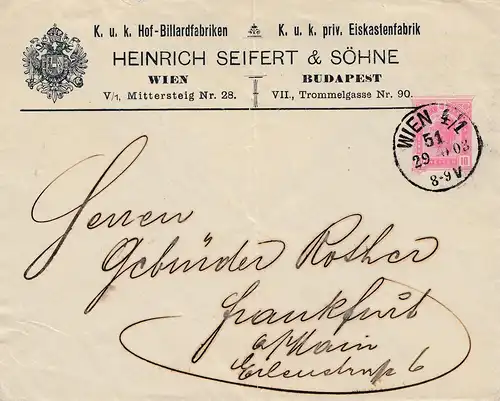 K. u. k. Hof-Billardfabriken K. u. k. priv. Eiskastenfabrik
HEINRICH SEIFERT & SÖHNE
WIEN BUDAPEST
V/1, Mittersteig Nr. 28. VII., Trommelgasse Nr. 90.
WIEN 4/1
51
29 03
8-9V
10
Herren
Gebrüder Rother
Frankfurt
a/Main
6